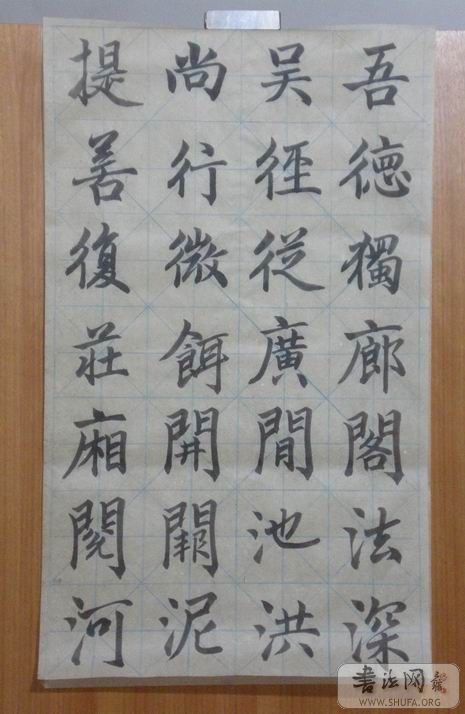 吾德獨廊閣法深
吴徑從廣閒池洪
尚行微餌開泥
提善復莊廂閱河
書法网
WWW.SHUFA.ORG